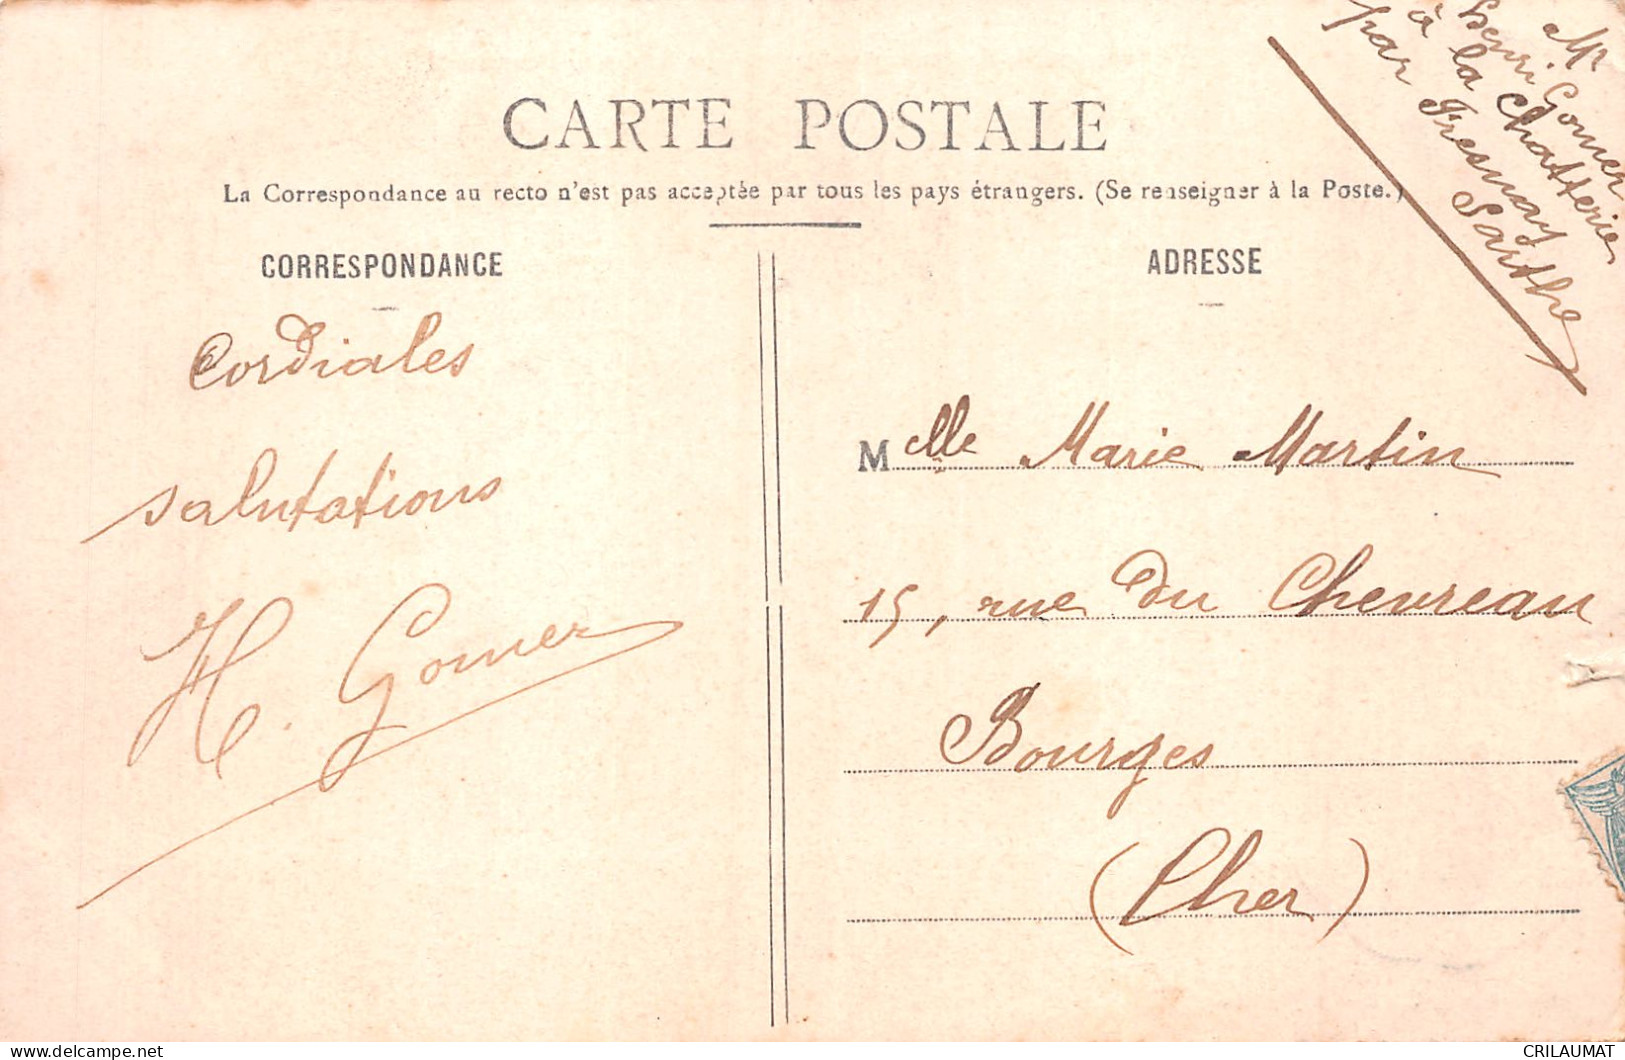 Mr
Henri Gomer
à la Chatterie
par Fresnay
Sarthe
CARTE POSTALE
La Correspondance au recto n'est pas acceptée par tous les pays étrangers. (Se renseigner à la Poste.)
CORRESPONDANCE
ADRESSE
Cordiales
salutations
H. Gomer
Melle Marie Martin
15, rue du Chevreau
Bourges
(Cher)
CRILAUMAT